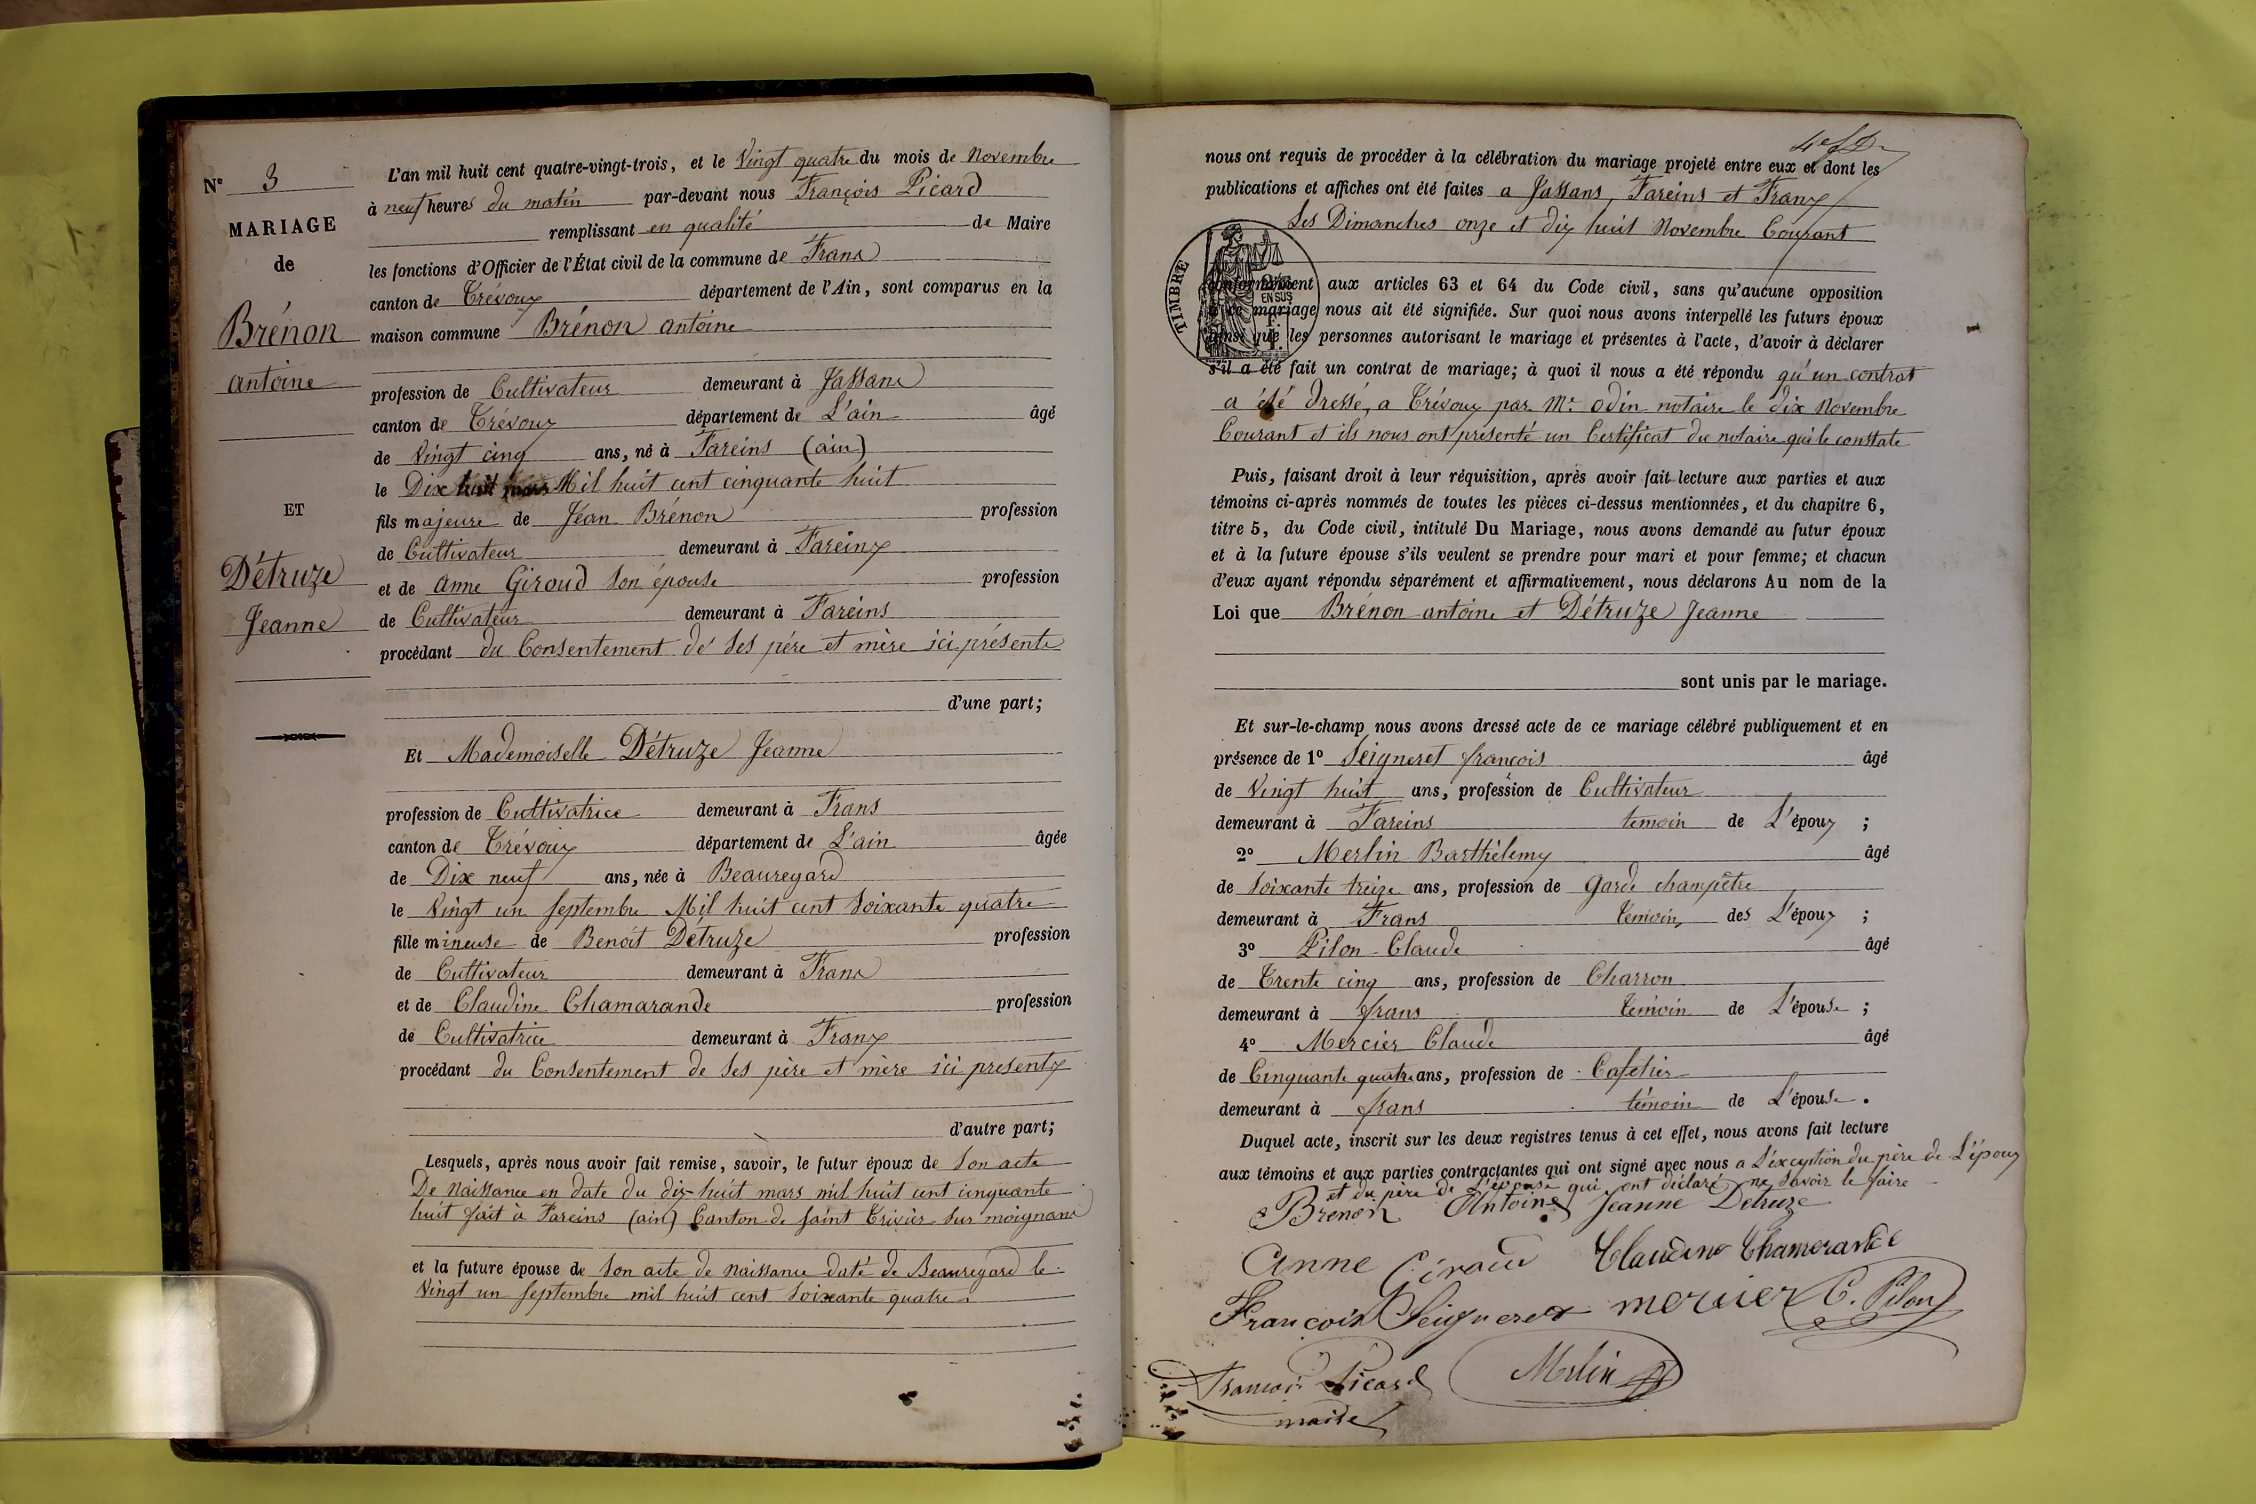 N° 3
MARIAGE
de
Brénon
antoine
ET
Détruze
Jeanne
L'an mil huit cent quatre-vingt-trois, et le Vingt quatre du mois de Novembre
à neuf heures du matin par-devant nous François Picard
remplissant en qualité de Maire
les fonctions d'Officier de l'État civil de la commune de Frans
canton de Trévoux département de l'Ain, sont comparus en la
maison commune Brénon antoine
profession de Cultivateur demeurant à Jassans
canton de Trévoux département de L'ain âgé
de Vingt cinq ans, né à Fareins (ain)
le Dix huit mars Mil huit cent cinquante huit
fils majeure de Jean Brénon profession
de Cultivateur demeurant à Fareinx
et de anne Giroud son épouse profession
de Cultivateur demeurant à Fareins
procédant du Consentement de ses père et mère ici présents
d'une part;
Et Mademoiselle Détruze Jeanne
profession de Cultivatrice demeurant à Frans
canton de Trévoux département de L'ain âgée
de Dix neuf ans, née à Beauregard
le Vingt un septembre Mil huit cent soixante quatre
fille mineuse de Benoit Détruze profession
de Cultivateur demeurant à Frans
et de Claudine Chamarande profession
de Cultivatrice demeurant à Franx
procédant du Consentement de ses père et mère ici presentx
d'autre part;
Lesquels, après nous avoir fait remise, savoir, le futur époux de son acte
De Naissance en date du dix-huit mars mil huit cent cinquante
huit fait à Fareins (ain) Canton de saint Triviers sur moignans
et la future épouse de son acte de naissance daté de Beauregard le
Vingt un septembre mil huit cent soixante quatre.
nous ont requis de procéder à la célébration du mariage projeté entre eux et dont les
publications et affiches ont été faites a Jassans, Fareins et Franx
Les Dimanches onze et dix huit Novembre Courant
TIMBRE
2/10
EN SUS
conformément aux articles 63 et 64 du Code civil, sans qu'aucune opposition
à ce mariage nous ait été signifiée. Sur quoi nous avons interpellé les futurs époux
ainsi que les personnes autorisant le mariage et présentes à l'acte, d'avoir à déclarer
s'il a été fait un contrat de mariage; à quoi il nous a été répondu qu'un contrat
a été dressé, a Trévoux par Mr. Odin notaire le dix Novembre
Courant et ils nous ont présenté un Certificat du notaire qui le constate
Puis, faisant droit à leur réquisition, après avoir fait lecture aux parties et aux
témoins ci-après nommés de toutes les pièces ci-dessus mentionnées, et du chapitre 6,
titre 5, du Code civil, intitulé Du Mariage, nous avons demandé au futur époux
et à la future épouse s'ils veulent se prendre pour mari et pour femme; et chacun
d'eux ayant répondu séparément et affirmativement, nous déclarons Au nom de la
Loi que Brénon antoine et Détruze Jeanne
sont unis par le mariage.
Et sur-le-champ nous avons dressé acte de ce mariage célébré publiquement et en
présence de 1° Seigneret françois âgé
de Vingt huit ans, profession de Cultivateur
demeurant à Fareins temoin de L'époux ;
2° Merlin Barthélemy âgé
de soixante treize ans, profession de Garde champêtre
demeurant à Frans témoin, des L'époux ;
3° Pilon Claude âgé
de Trente cinq ans, profession de Charron
demeurant à frans témoin de L'épouse ;
4° Mercier Claude âgé
de Cinquante quatre ans, profession de Cafetier
demeurant à frans témoin de L'épouse.
Duquel acte, inscrit sur les deux registres tenus à cet effet, nous avons fait lecture
aux témoins et aux parties contractantes qui ont signé avec nous a L'éxception du père de L'époux
et du père de L'épouse qui ont déclaré ne savoir le faire
Brenon Antoine Jeanne Detruze
Anne Giroud Claudine Chamerande
François Seigneret mercier C. Pilon
François Picard Merlin
maire